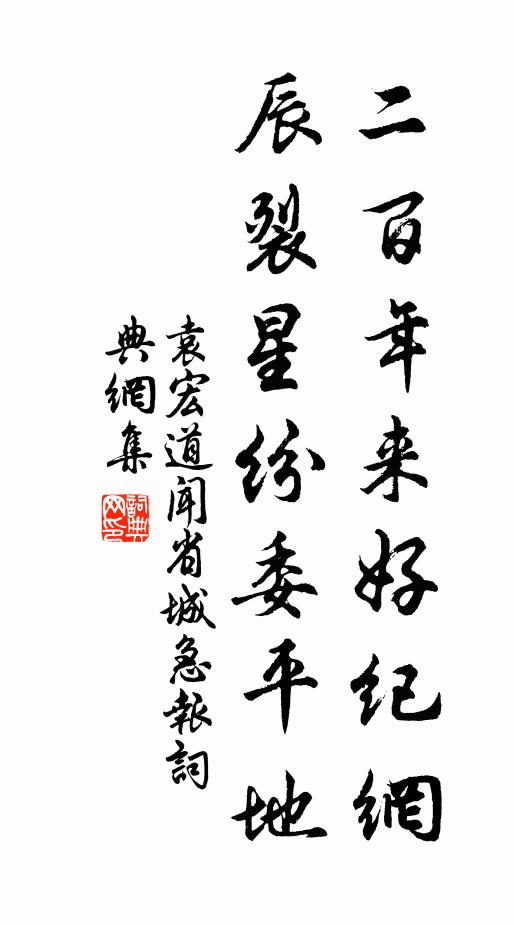 二百年来好纪網
辰裂星纷委平地
袁宏道闻省城急報詞
典網集
詞典网印